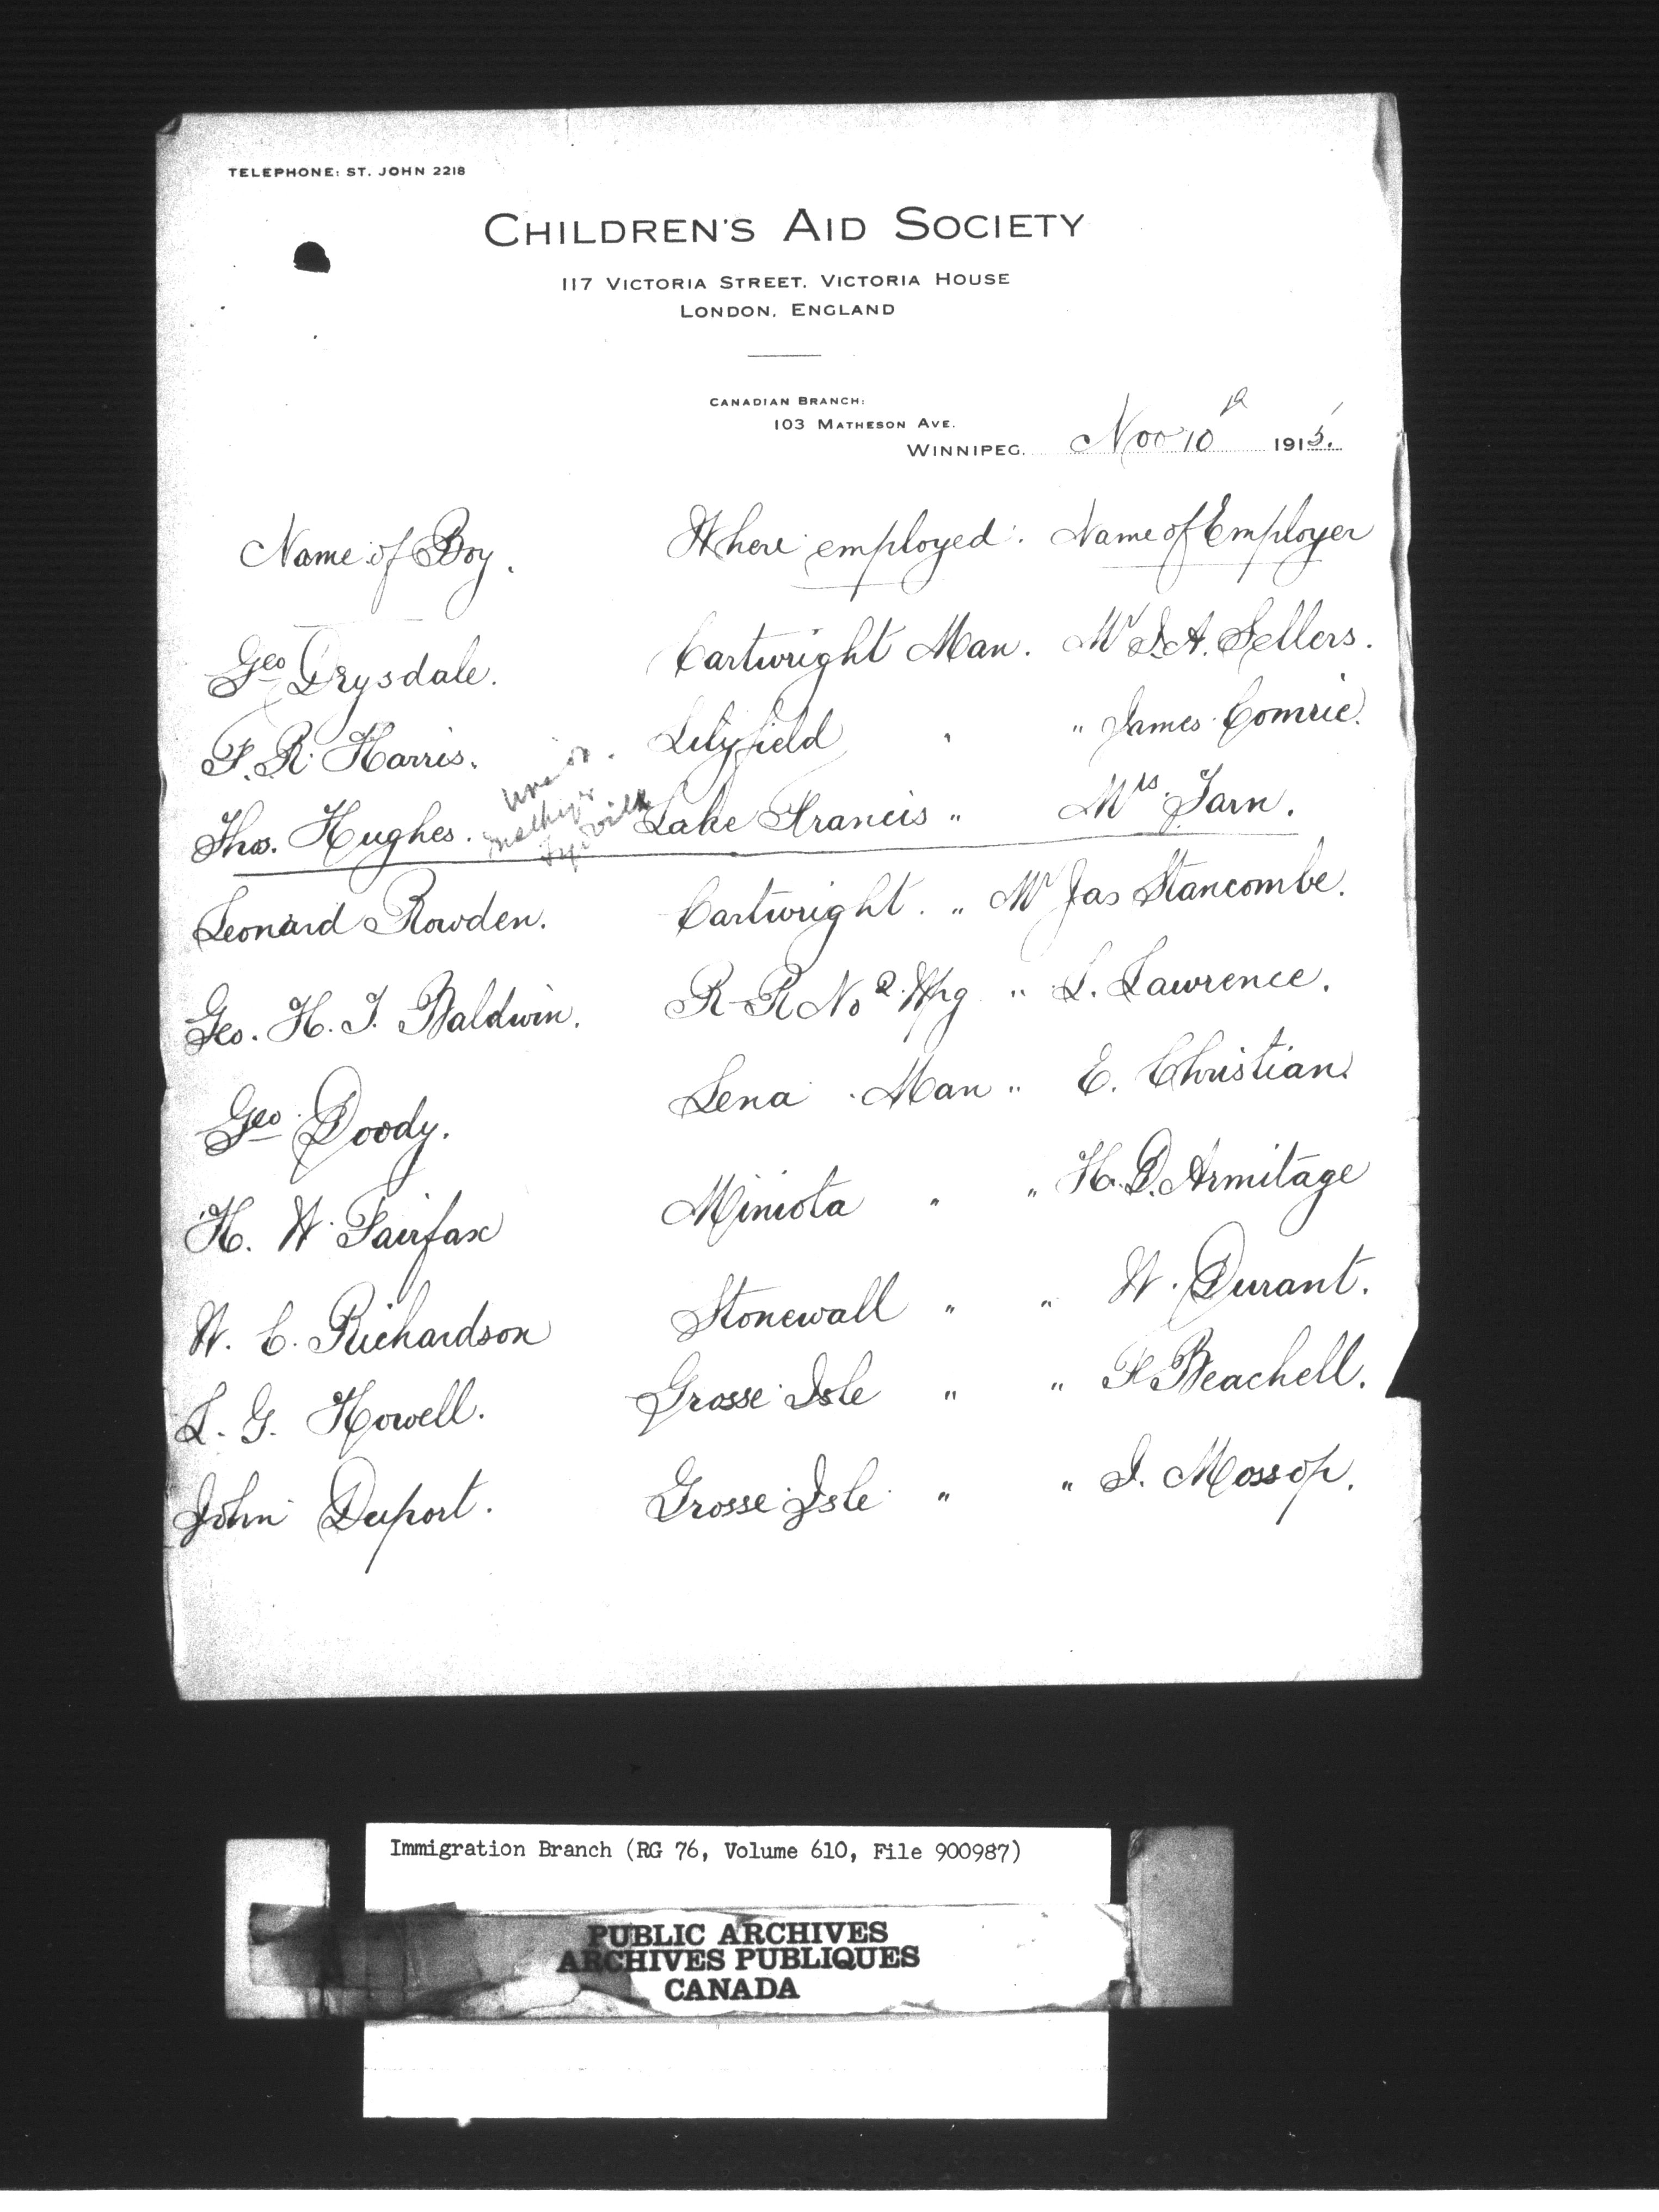 TELEPHONE: ST. JOHN 2218
CHILDREN'S AID SOCIETY
117 VICTORIA STREET, VICTORIA HOUSE
LONDON, ENGLAND
CANADIAN BRANCH:
103 MATHESON AVE.
WINNIPEG. Nov 10th 1915.
Name of Boy. Where employed. Name of Employer
Geo Drysdale. Cartwright Man. Mr J.A. Sellers.
F. R. Harris. Lilyfield " " James Comrie.
Thos. Hughes. Lake Francis " Mrs Tarn.
Leonard Rowden. Cartwright. " Mr Jas Stancombe.
Geo. H. J. Baldwin. R-R No 2. Wpg " L. Lawrence.
Geo Doody. Lena Man " E. Christian.
H. W. Fairfax Miniota " " H. D. Armitage
W. C. Richardson Stonewall " " W. Durant.
L. G. Howell. Grosse Isle " " F Beachell.
John Duport. Grosse Isle " " J. Mossop.
Immigration Branch (RG 76, Volume 610, File 900987)
PUBLIC ARCHIVES
ARCHIVES PUBLIQUES
CANADA